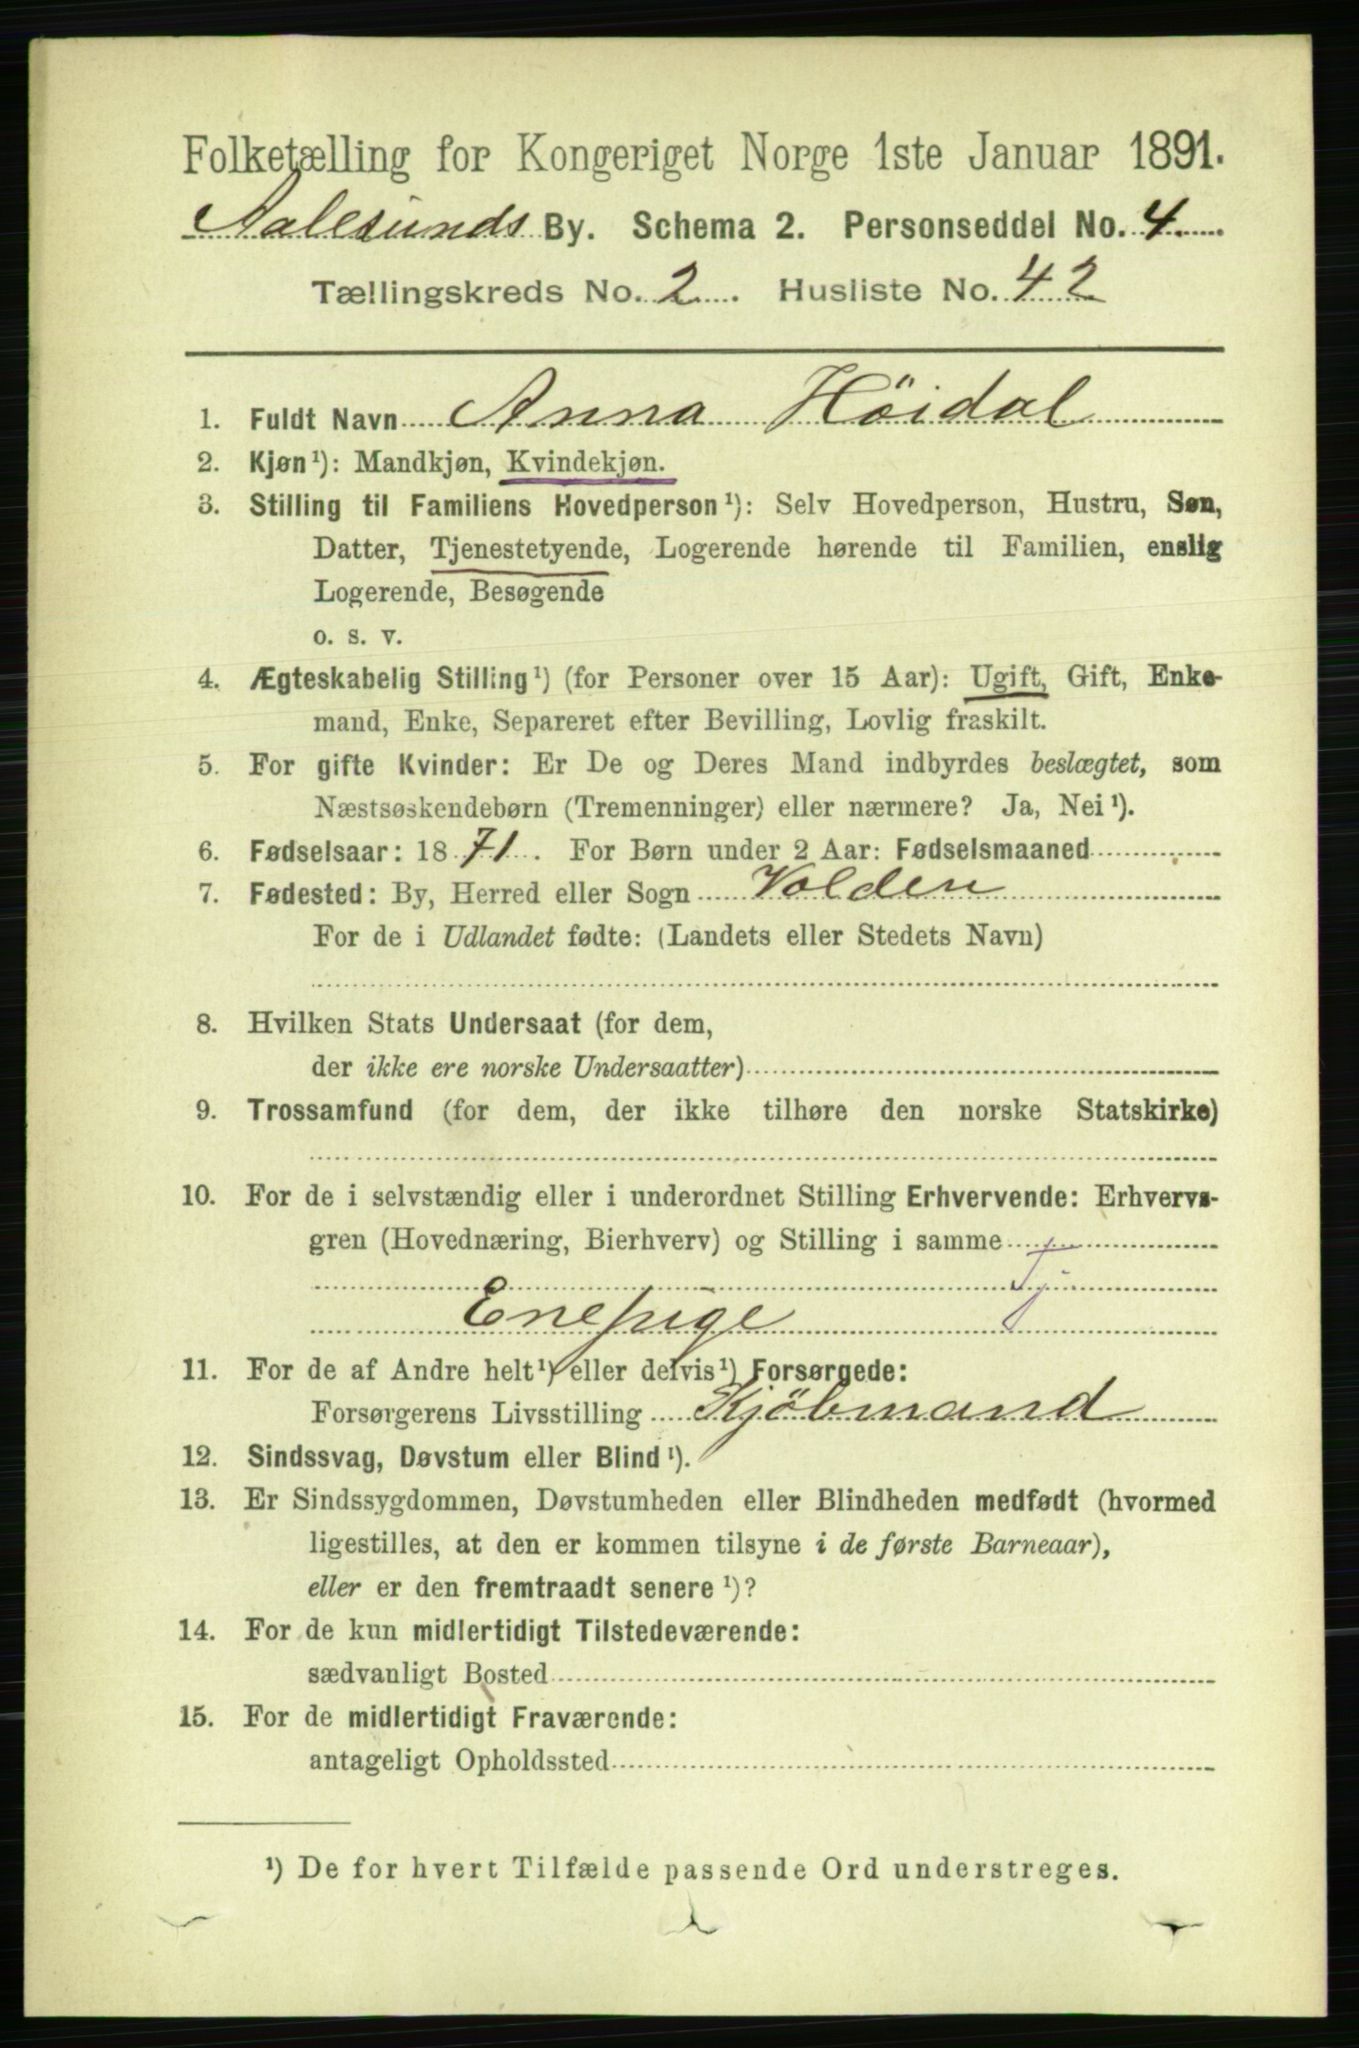 Folketælling for Kongeriget Norge 1ste Januar 1891.
Aalesunds By. Schema 2. Personseddel No. 4.
Tællingskreds No. 2. Husliste No. 42
1. Fuldt Navn Anna Höidal
2. Kjøn ¹): Mandkjøn, Kvindekjøn.
3. Stilling til Familiens Hovedperson ¹): Selv Hovedperson, Hustru, Søn,
Datter, Tjenestetyende, Logerende hørende til Familien, enslig
Logerende, Besøgende
o. s. v.
4. Ægteskabelig Stilling ¹) (for Personer over 15 Aar): Ugift, Gift, Enke-
mand, Enke, Separeret efter Bevilling, Lovlig fraskilt.
5. For gifte Kvinder: Er De og Deres Mand indbyrdes beslægtet, som
Næstsøskendebørn (Tremenninger) eller nærmere? Ja, Nei ¹).
6. Fødselsaar: 1871. For Børn under 2 Aar: Fødselsmaaned
7. Fødested: By, Herred eller Sogn Volden
For de i Udlandet fødte: (Landets eller Stedets Navn)
8. Hvilken Stats Undersaat (for dem,
der ikke ere norske Undersaatter)
9. Trossamfund (for dem, der ikke tilhøre den norske Statskirke)
10. For de i selvstændig eller i underordnet Stilling Erhvervende: Erhvervs-
gren (Hovednæring, Bierhverv) og Stilling i samme
Enepige Tj
11. For de af Andre helt ¹) eller delvis ¹) Forsørgede:
Forsørgerens Livsstilling Kjöbmand
12. Sindssvag, Døvstum eller Blind ¹).
13. Er Sindssygdommen, Døvstumheden eller Blindheden medfødt (hvormed
ligestilles, at den er kommen tilsyne i de første Barneaar),
eller er den fremtraadt senere ¹)?
14. For de kun midlertidigt Tilstedeværende:
sædvanligt Bosted
15. For de midlertidigt Fraværende:
antageligt Opholdssted
¹) De for hvert Tilfælde passende Ord understreges.